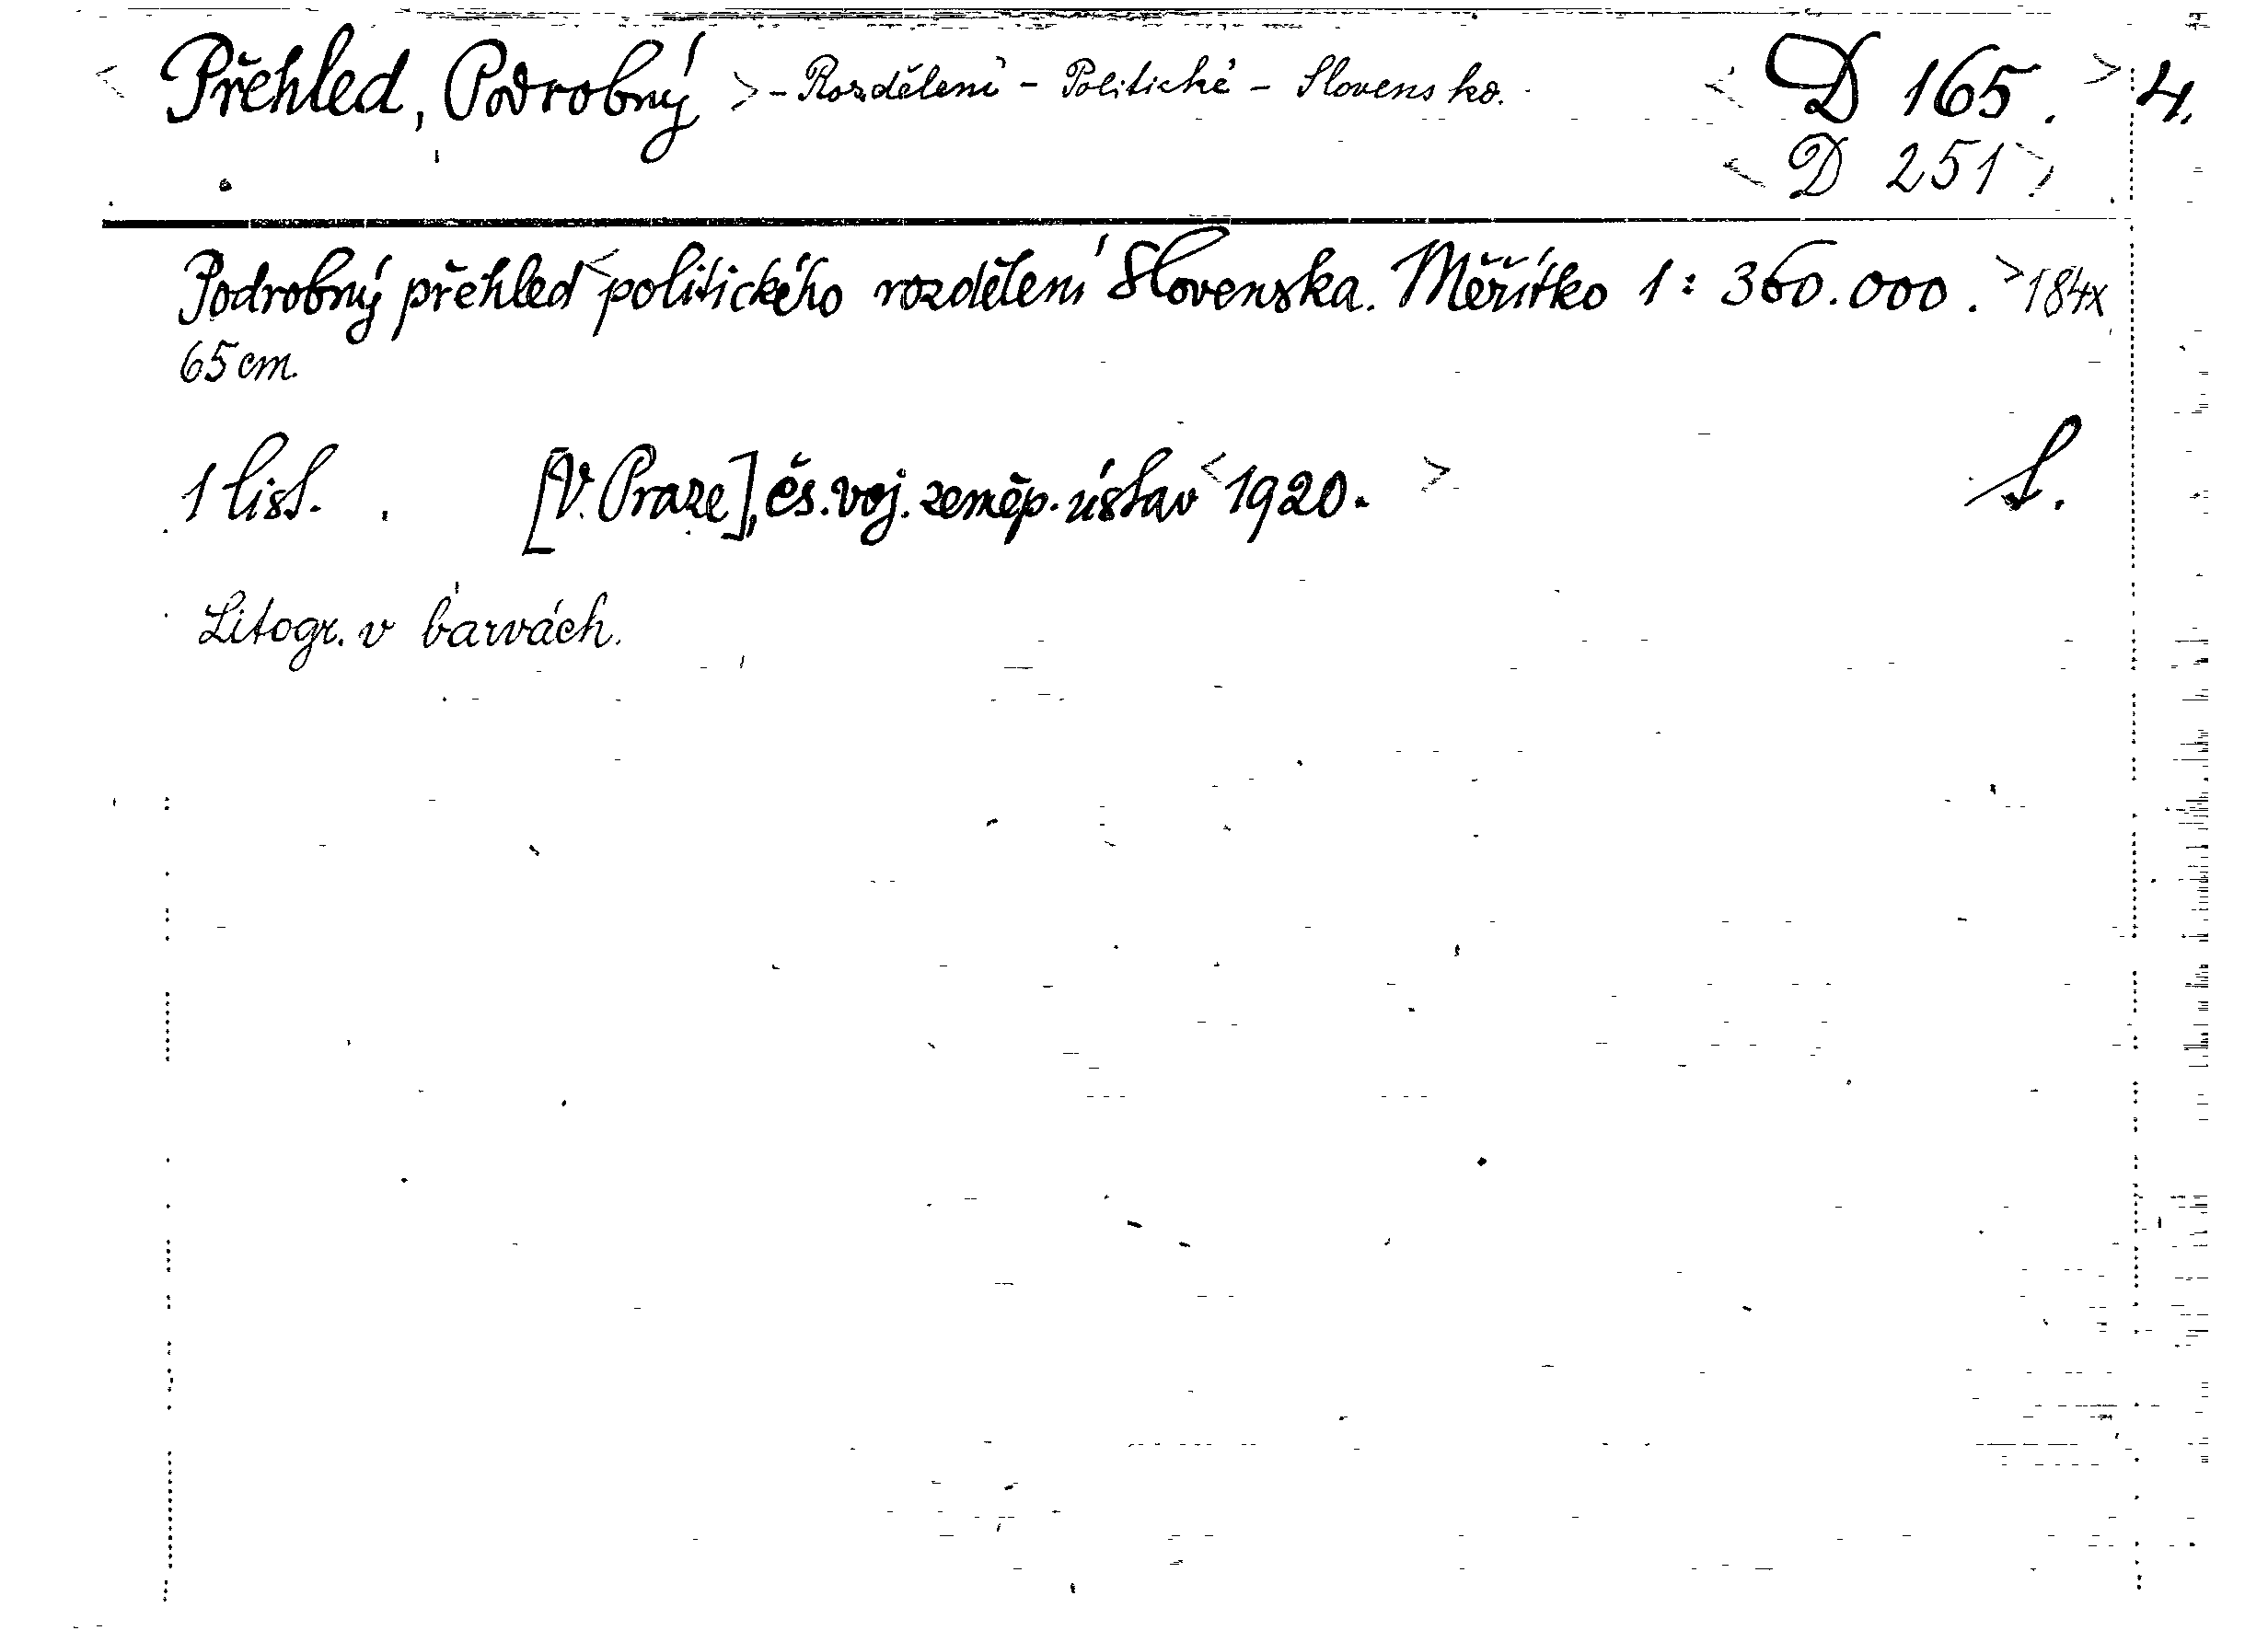 < Přehled, Podrobný > - Rozdělení - Politické - Slovensko. < D 165. > 4.
< D 251 >
Podrobný přehled < politického rozdělení Slovenska. Měřítko 1 : 360.000. > 184x
65 cm.
1 list. [V. Praze], čs. voj. zeměp. ústav < 1920. >
Litogr. v barvách.